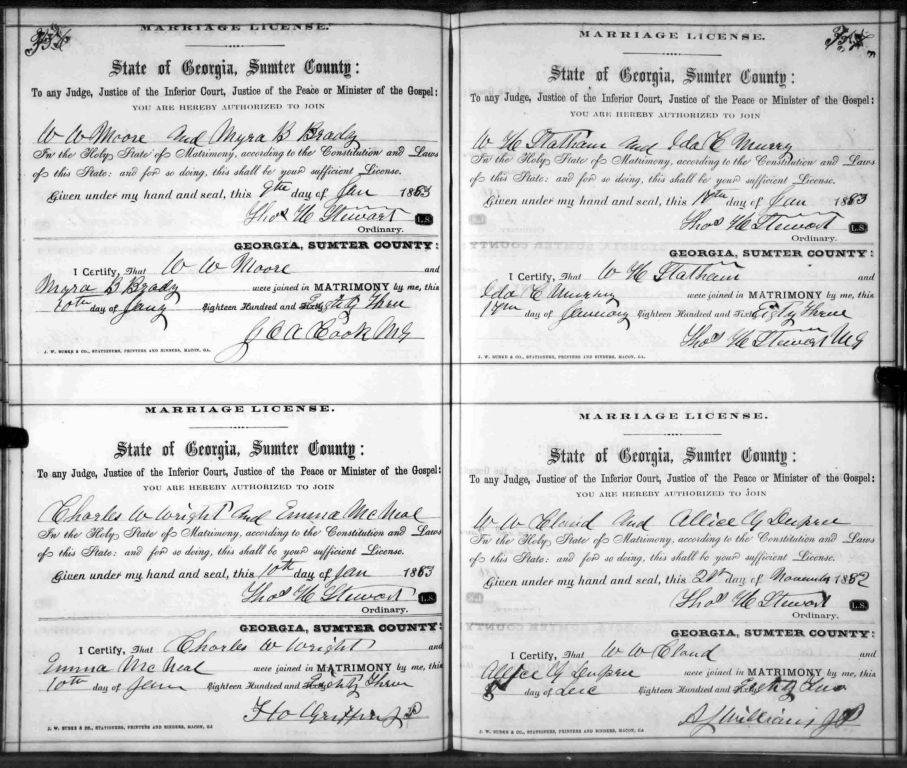 MARRIAGE LICENSE.
State of Georgia, Sumter County:
To any Judge, Justice of the Inferior Court, Justice of the Peace or Minister of the Gospel:
YOU ARE HEREBY AUTHORIZED TO JOIN
W W Moore and Myra B Brady
In the Holy State of Matrimony, according to the Constitution and Laws
of this State: and for so doing, this shall be your sufficient License.
Given under my hand and seal, this 9th day of Jan 1883
Thos H Stewart L.S.
Ordinary.
GEORGIA, SUMTER COUNTY:
I Certify, That W W Moore and
Myra B Brady were joined in MATRIMONY by me, this
10th day of Jany Eighteen Hundred and Eighty Three
Cook MG
J. W. BURKE & CO., STATIONERS, PRINTERS AND BINDERS, MACON, GA.
MARRIAGE LICENSE.
State of Georgia, Sumter County:
To any Judge, Justice of the Inferior Court, Justice of the Peace or Minister of the Gospel:
YOU ARE HEREBY AUTHORIZED TO JOIN
Charles W Wright and Emma McNeal
In the Holy State of Matrimony, according to the Constitution and Laws
of this State: and for so doing, this shall be your sufficient License.
Given under my hand and seal, this 10th day of Jan 1883
Thos H Stewart L.S.
Ordinary.
GEORGIA, SUMTER COUNTY:
I Certify, That Charles W Wright and
Emma McNeal were joined in MATRIMONY by me, this
10th day of Jan Eighteen Hundred and Eighty Three
Griffin JP
J. W. BURKE & CO., STATIONERS, PRINTERS AND BINDERS, MACON, GA
MARRIAGE LICENSE.
State of Georgia, Sumter County:
To any Judge, Justice of the Inferior Court, Justice of the Peace or Minister of the Gospel:
YOU ARE HEREBY AUTHORIZED TO JOIN
W H Statham and Ida C Murry
In the Holy State of Matrimony, according to the Constitution and Laws
of this State: and for so doing, this shall be your sufficient License.
Given under my hand and seal, this day of Jan 1883
Thos H Stewart L.S.
Ordinary.
GEORGIA, SUMTER COUNTY:
I Certify, That W H Statham and
Ida C Murry were joined in MATRIMONY by me, this
day of January Eighteen Hundred and Eighty Three
Thos H Stewart MG
J. W. BURKE & CO., STATIONERS, PRINTERS AND BINDERS, MACON, GA.
MARRIAGE LICENSE.
State of Georgia, Sumter County:
To any Judge, Justice of the Inferior Court, Justice of the Peace or Minister of the Gospel:
YOU ARE HEREBY AUTHORIZED TO JOIN
W W Cloud and Allice G Dupree
In the Holy State of Matrimony, according to the Constitution and Laws
of this State: and for so doing, this shall be your sufficient License.
Given under my hand and seal, this 21st day of November 1882
Thos H Stewart L.S.
Ordinary.
GEORGIA, SUMTER COUNTY:
I Certify, That W W Cloud and
Allice G Dupree were joined in MATRIMONY by me, this
day of Dec Eighteen Hundred and Eighty Two
A J Williams JP
J. W. BURKE & CO., STATIONERS, PRINTERS AND BINDERS, MACON, GA